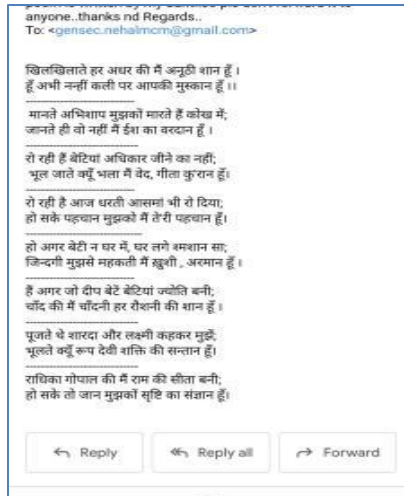 anyone..thanks nd Regards..
To: <gensec.nehalmcm@gmail.com>
खिलखिलाते हर अधर की मैं अनूठी शान हूँ ।
हूँ अभी नन्हीं कली पर आपकी मुस्कान हूँ ।।
----------------------------
मानते अभिशाप मुझकों मारते हैं कोख में;
जानते ही वो नहीं मैं ईश का वरदान हूँ ।
----------------------------
रो रही हैं बेटियां अधिकार जीने का नहीं;
भूल जाते क्यूँ भला मैं वेद, गीता कुरान हूँ।
----------------------------
रो रही है आज धरती आसमां भी रो दिया;
हो सके पहचान मुझको मैं तेरी पहचान हूँ।
----------------------------
हो अगर बेटी न घर में, घर लगे श्मशान सा;
जिन्दगी मुझसे महकती मैं ख़ुशी , अरमान हूँ ।
----------------------------
हैं अगर जो दीप बेटें बेटियां ज्योति बनी;
चाँद की मैं चाँदनी हर रौशनी की शान हूँ ।
----------------------------
पूजते थे शारदा और लक्ष्मी कहकर मुझें;
भूलते क्यूँ रूप देवी शक्ति की सन्तान हूँ।
----------------------------
राधिका गोपाल की मैं राम की सीता बनी;
हो सके तो जान मुझकों सृष्टि का संज्ञान हूँ।
Reply
Reply all
Forward